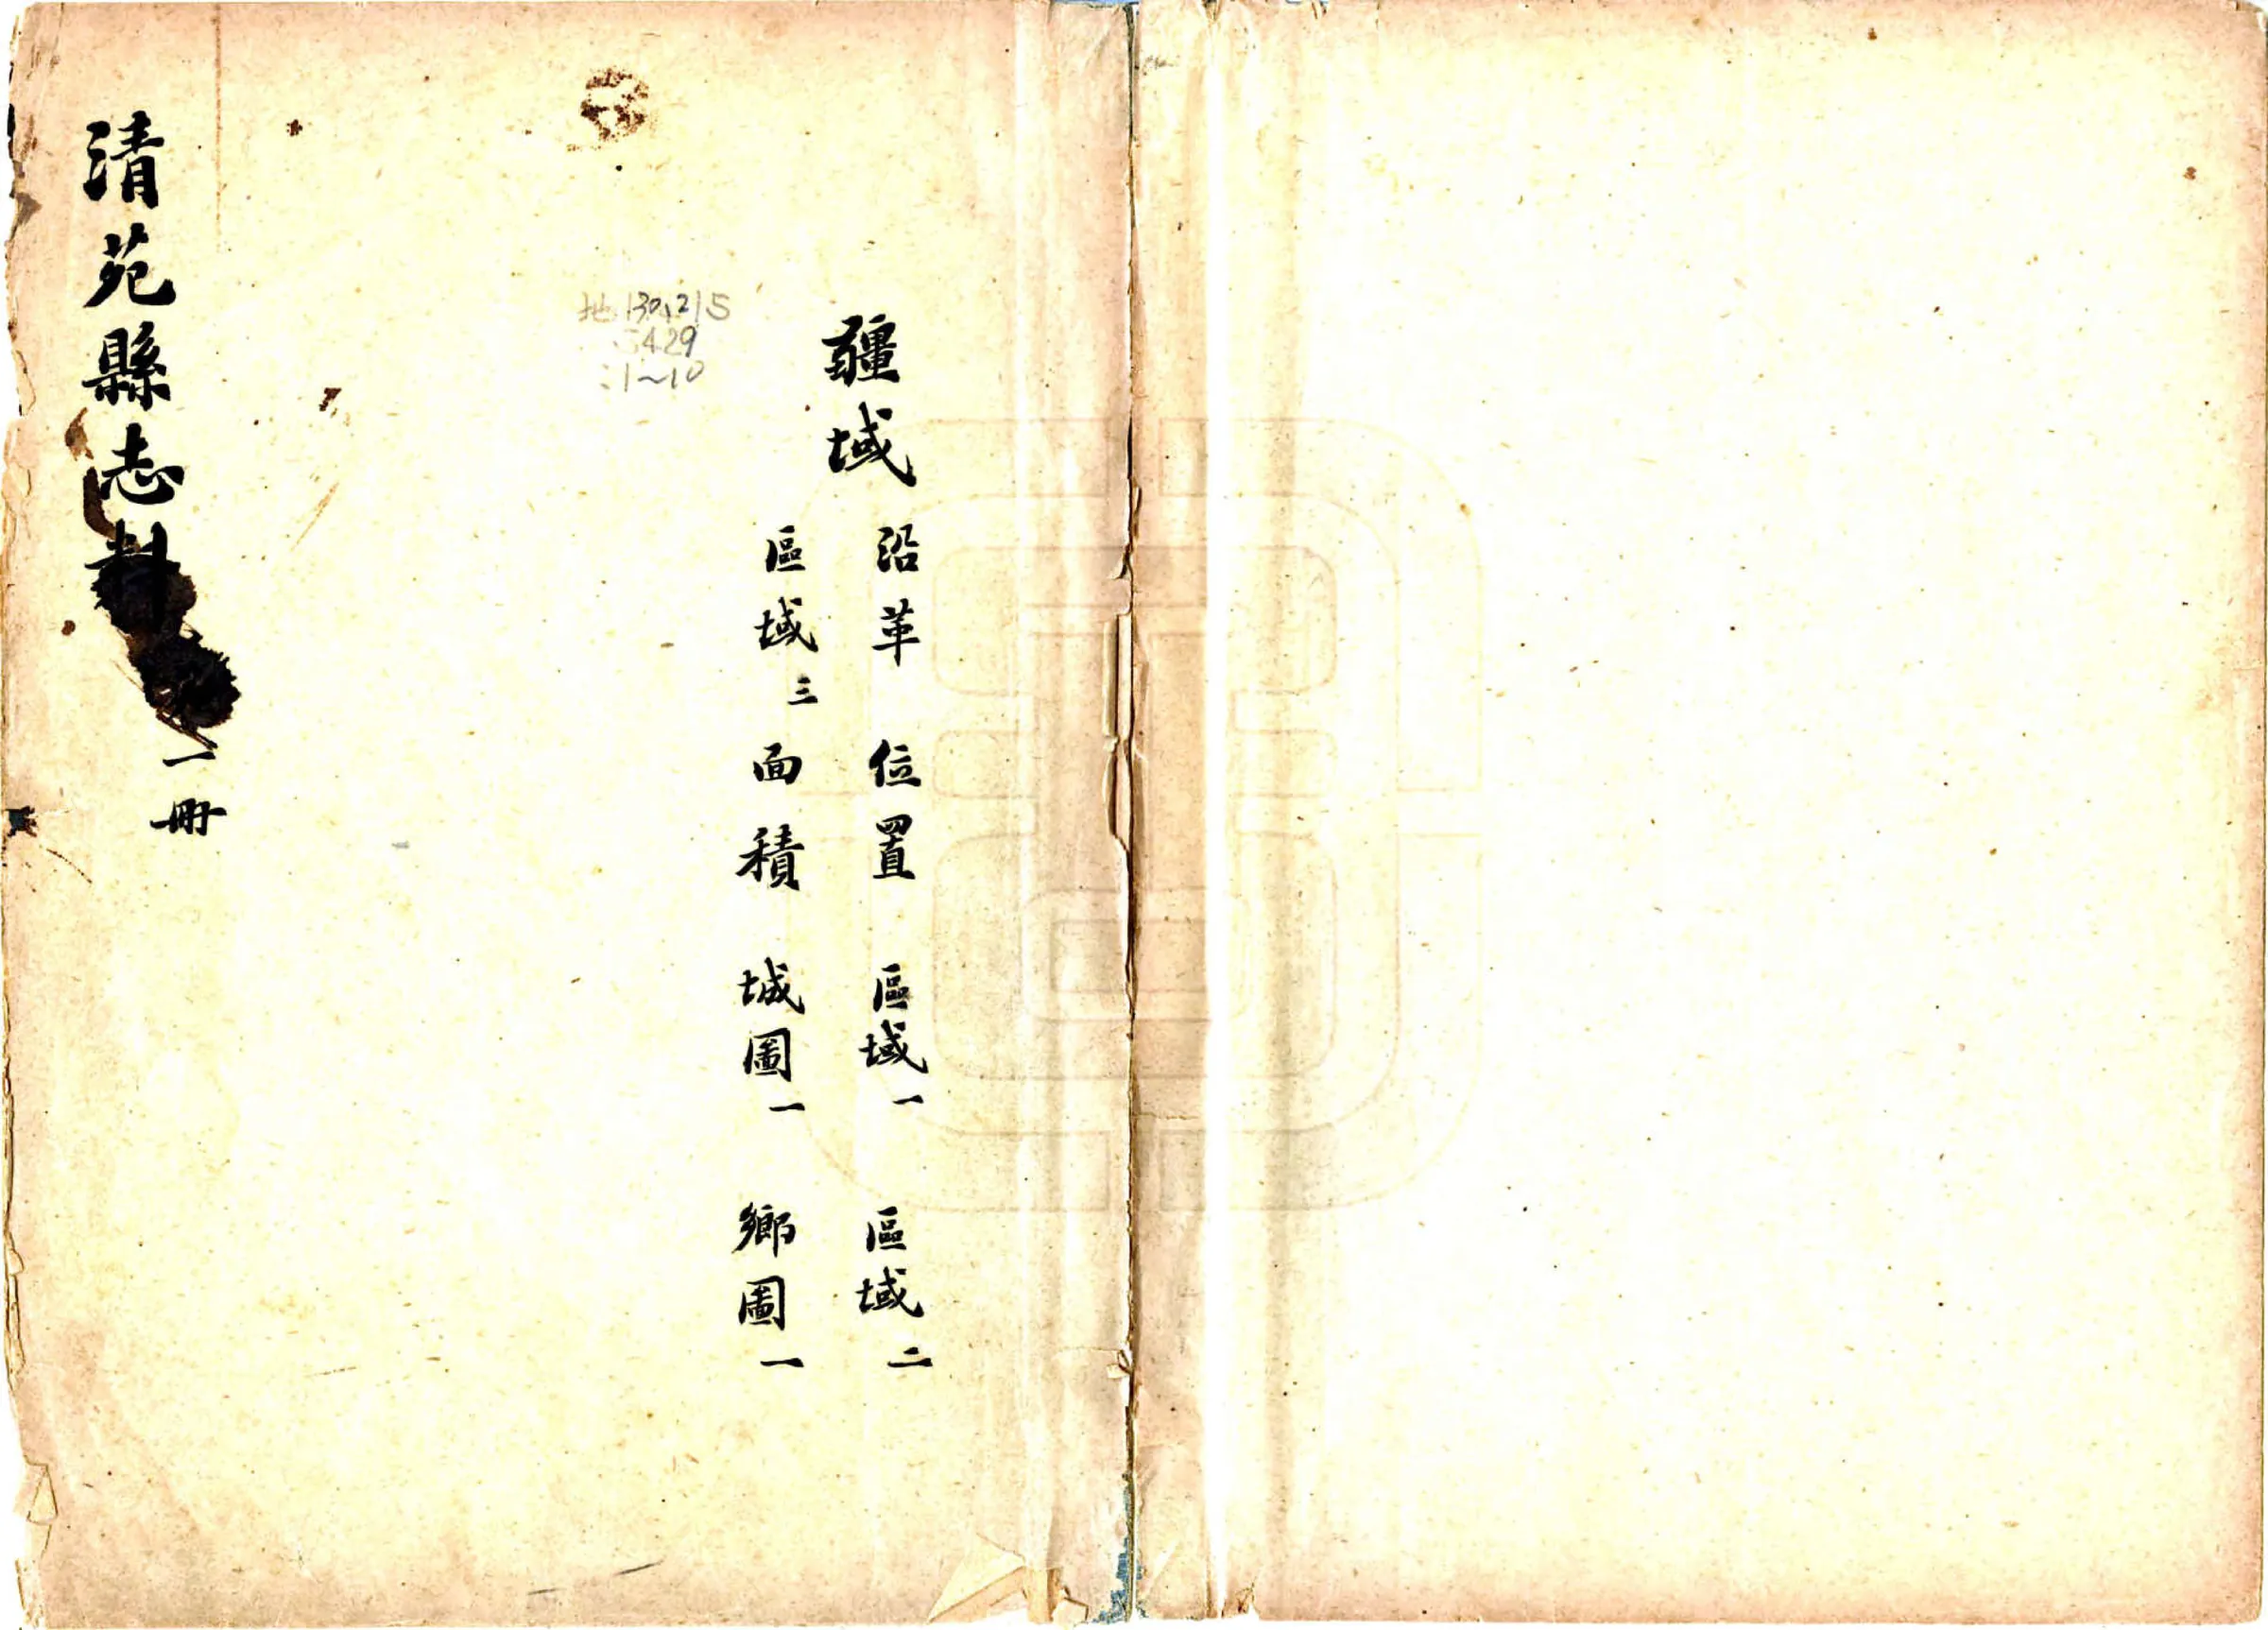 疆域
沿革 位置 區域一 區域二
區域三 面積 城圖一 鄉圖一
地130.215
429
:1~10
清苑縣志料
一冊